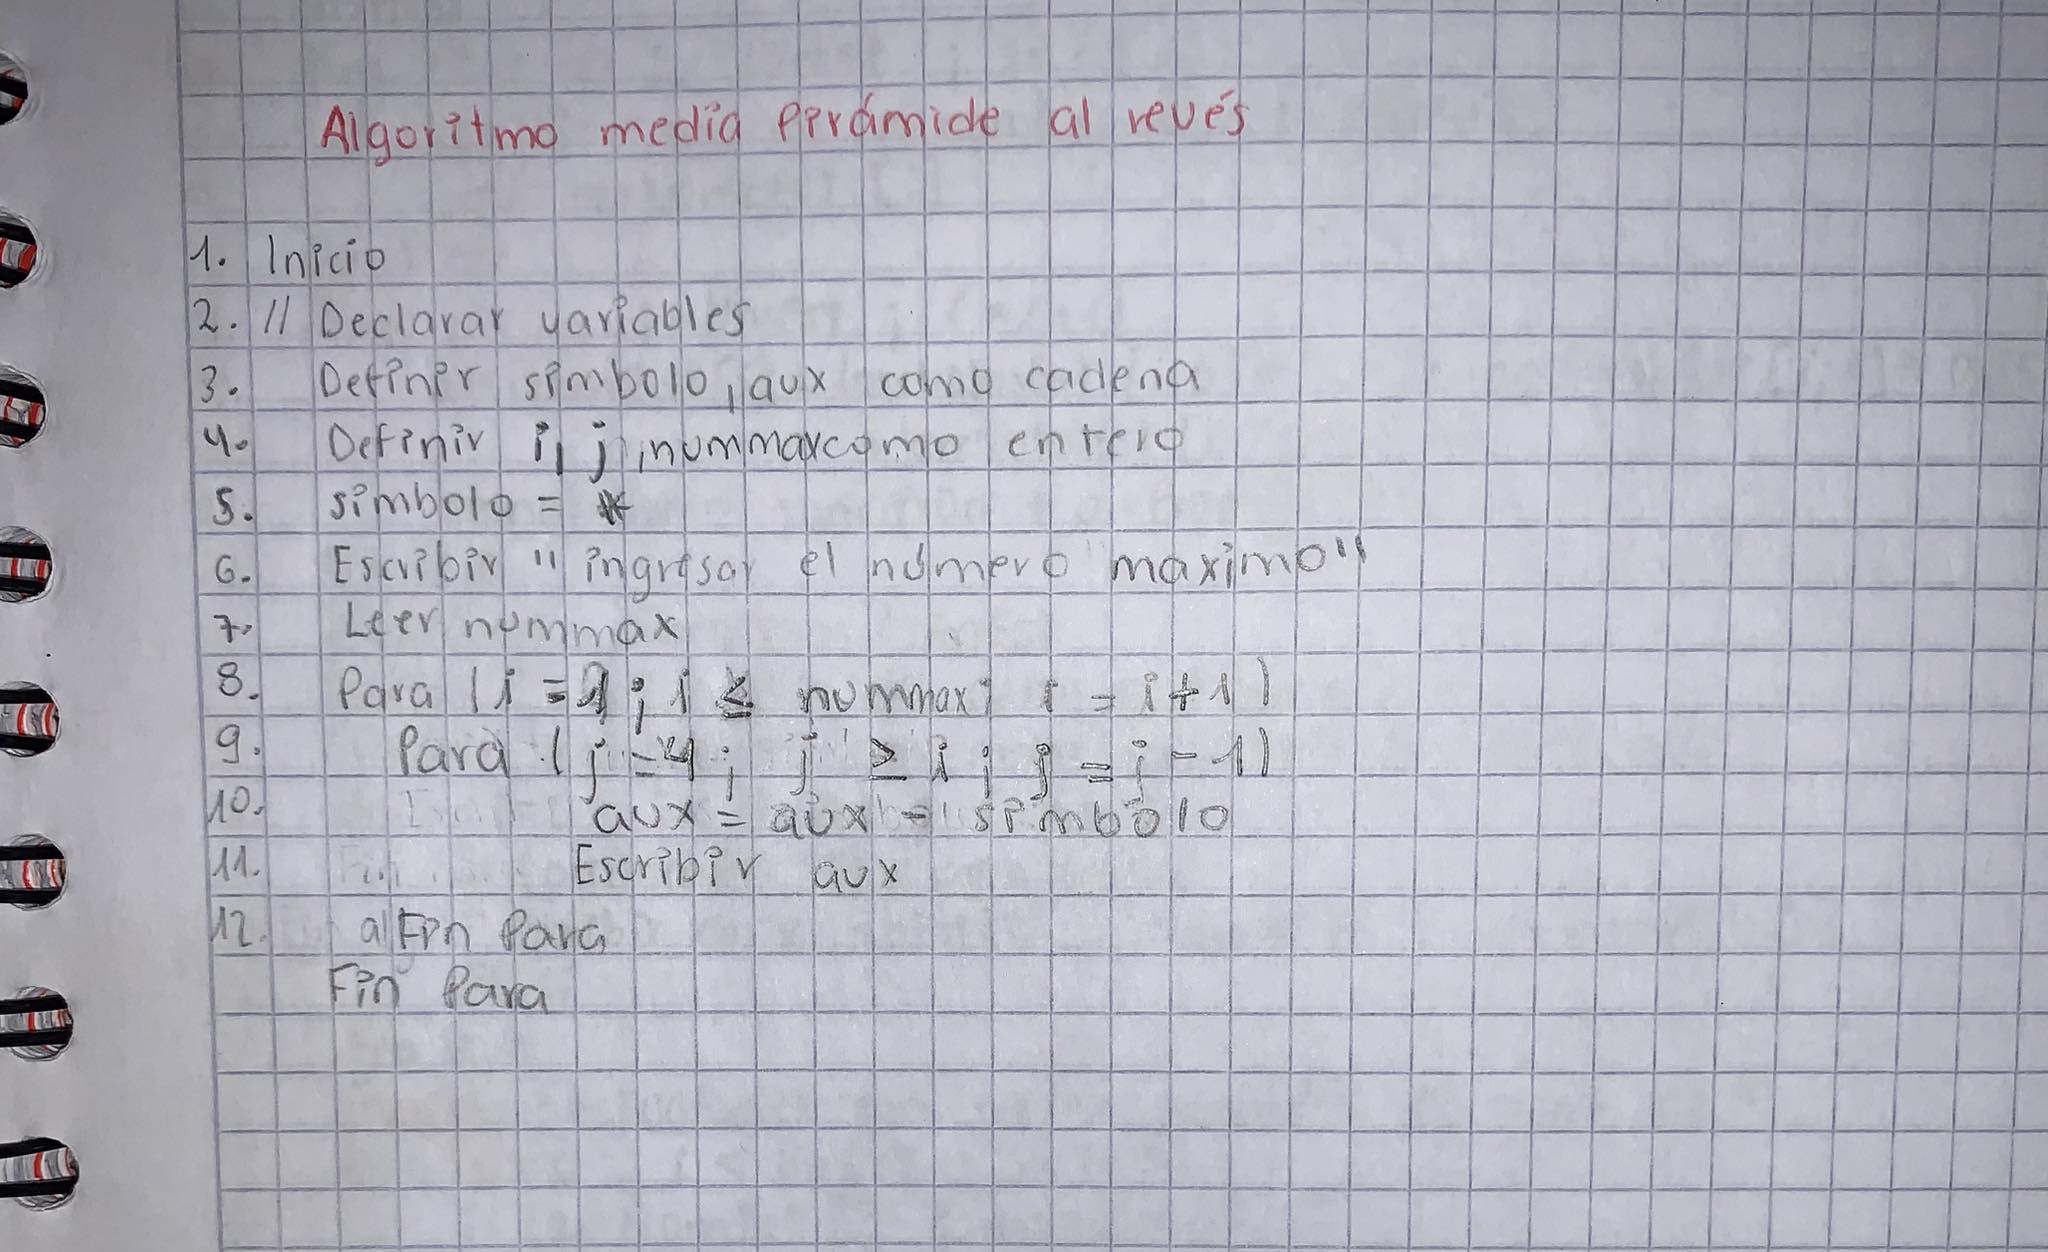 Algoritmo media pirámide al revés
1. Inicio
2. // Declarar variables
3. Definir simbolo, aux como cadena
4. Definir i, j, nummax como entero
5. simbolo = *
6. Escribir "ingresar el número maximo"
7. Leer nummax
8. Para (i = 1; i ≤ nummax; i = i+1)
9. Para (j = 4; j ≥ i; j = j - 1)
10. aux = aux - simbolo
11. Escribir aux
12. a Fin Para
Fin Para